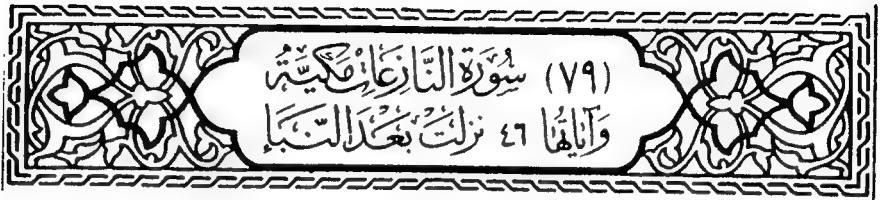 (٧٩) سُورَةُ النَّازِعَاتِ مَكِّيَّةٌ
وَآيَاتُهَا ٤٦ نَزَلَتْ بَعْدَ النَّبَإِ